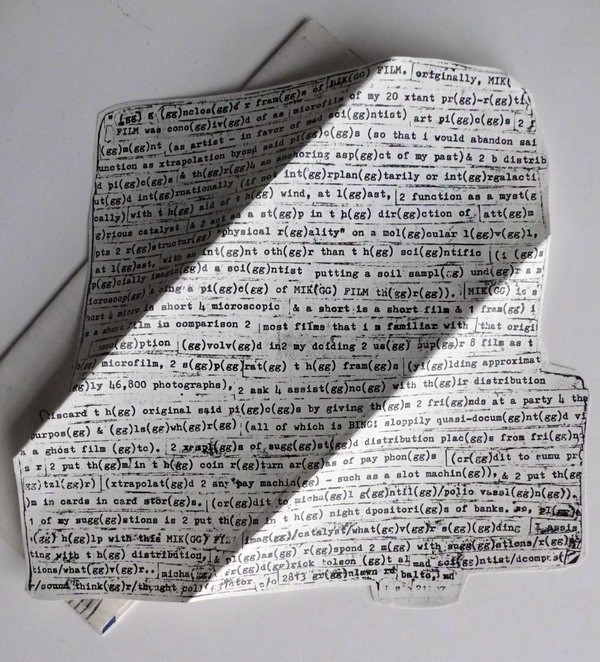 "(gg) g (gg)nclos(gg)d r fram(gg)s of MIK(GG) FILM. originally, MIK(
FILM was conc(gg)iv(gg)d of as microfilm of my 20 xtant pr(gg)-r(gg)ti
(gg)m(gg)nt (as artist - in favor of mad sci(gg)ntist) art pi(gg)c(gg)s
unction as xtrapolation byond said pi(gg)c(gg)s (so that i would abandon sai
d pi(gg)c(gg)s & th(gg)r(gg)by an anchoring asp(gg)ct of my past) & 2 b distrib
ut(gg)d int(gg)rnationally (if not int(gg)rplan(gg)tarily or int(gg)rgalacti
cally) with t h(gg) aid of t h(gg) wind, at l(gg)ast, 2 function as a myst(g
g)rious catalyst & 2 act as a st(gg)p in t h(gg) dir(gg)ction of att(gg)m
pts 2 r(gg)structur(gg) "physical r(gg)ality" on a mol(gg)cular l(gg)v(gg)l,
at l(gg)ast, with an int(gg)nt oth(gg)r than t h(gg) sci(gg)ntific (i (gg)s
p(gg)cially imagin(gg)d a sci(gg)ntist putting a soil sampl(gg) und(gg)r a m
icroscop(gg) & s(gg)ing a pi(gg)c(gg) of MIK(GG) FILM th(gg)r(gg)). MIK(GG) is s
hort 4 micro in short 4 microscopic & a short is a short film & 1 fram(gg) i
s a short film in comparison 2 most films that i m familiar with that origi
(gg)ption (gg)volv(gg)d in2 my d(gg)ciding 2 us(gg) sup(gg)r 8 film as t
microfilm, 2 s(gg)p(gg)rat(gg) t h(gg) fram(gg)s (yi(gg)lding approximat
(gg)ly 46,800 photographs), 2 ask 4 assist(gg)nc(gg) with th(gg)ir distribution
Discard t h(gg) original said pi(gg)c(gg)s by giving th(gg)m 2 fri(gg)nds at a party 4 the
urpos(gg) & (gg)ls(gg)wh(gg)r(gg) (all of which is BING! sloppily quasi-docum(gg)nt(gg)d vi
a a ghost film (gg)tc). 2 xampl(gg)s of sugg(gg)st(gg)d distribution plac(gg)s from fri(gg)n
s r 2 put th(gg)m in t h(gg) coin r(gg)turn ar(gg)as of pay phon(gg)s (cr(gg)dit to
gg)tzl(gg)r) (xtrapolat(gg)d 2 any pay machin(gg) - such as a slot machin(gg)), & 2 put th(gg
)m in cards in card stor(gg)s. (cr(gg)dit to micha(gg)l g(gg)ntil(gg)/polio vassal(gg)n(gg)).
1 of my sugg(gg)stions is 2 put th(gg)m in t h(gg) night dpositori(gg)s of banks.
(gg) h(gg)lp with this MIK(GG) FILM imag(gg)/catalyst/what(gg)v(gg)r s(gg)(gg)ding assis
ting with t h(gg) distribution, & pl(gg)as(gg) r(gg)spond 2 m(gg) with sugg(gg)stions/r(gg)
tions/what(gg)v(gg)r.. micha(gg) fr(gg)d(gg)rick tolson (gg)t al mad sci(gg)ntist/dcompos(
r/sound think(gg)r/thought coll(gg) 2813 balto, md